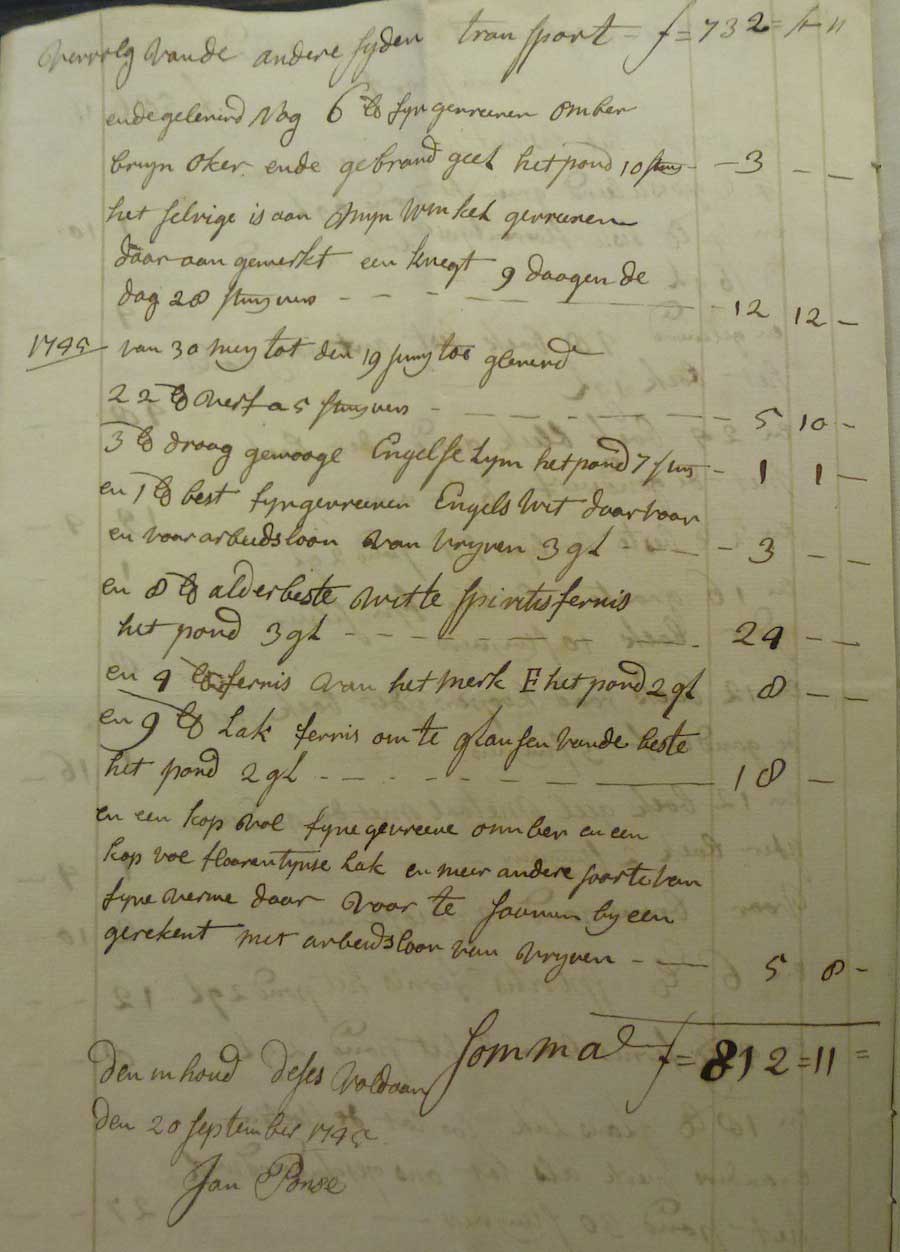 vervolg vande andere syden transport - f = 732 =
ende gelevird nog 6 lb fyn gevreeven omber
bruyn oker ende gebrand geel het pond 10 stuys - - 3 - -
het selvige is aan myn winkel gevreeven
daar aan gewerkt een knegt 9 daagen de
dag 28 stuyvers - - - - 12 12 -
1745 van 30 mey tot den 19 juny toe gleverd
22 lb verf a 5 stuyvers - - - 5 10 -
3 lb droog gewooge Engelse Lym het pond 7 stuys - 1 1 -
en 1 lb best fyn gevreeven Engels wit daar voor
en voor arbeidsloon van vryven 3 gl - - - 3 - -
en 8 lb alderbeste witte spiritis fernis
het pond 3 gl - - - - 24 - -
en 4 lb fernis van het merk E het pond 2 gl 8 - -
en 9 lb Lak fernis om te glansen vande beste
het pond 2 gl - - - - 18 -
en een kop vol fyne gevreeve omber en een
kop vol floorentynse Lak en meer andere soorte van
fyne verwe daar voor te saamen by een
gerekent met arbeidsloon van vryven - - 5 8 -
Somma f = 812 = 11 =
den inhoud deses voldaan
den 20 september 1745
Jan Ponse